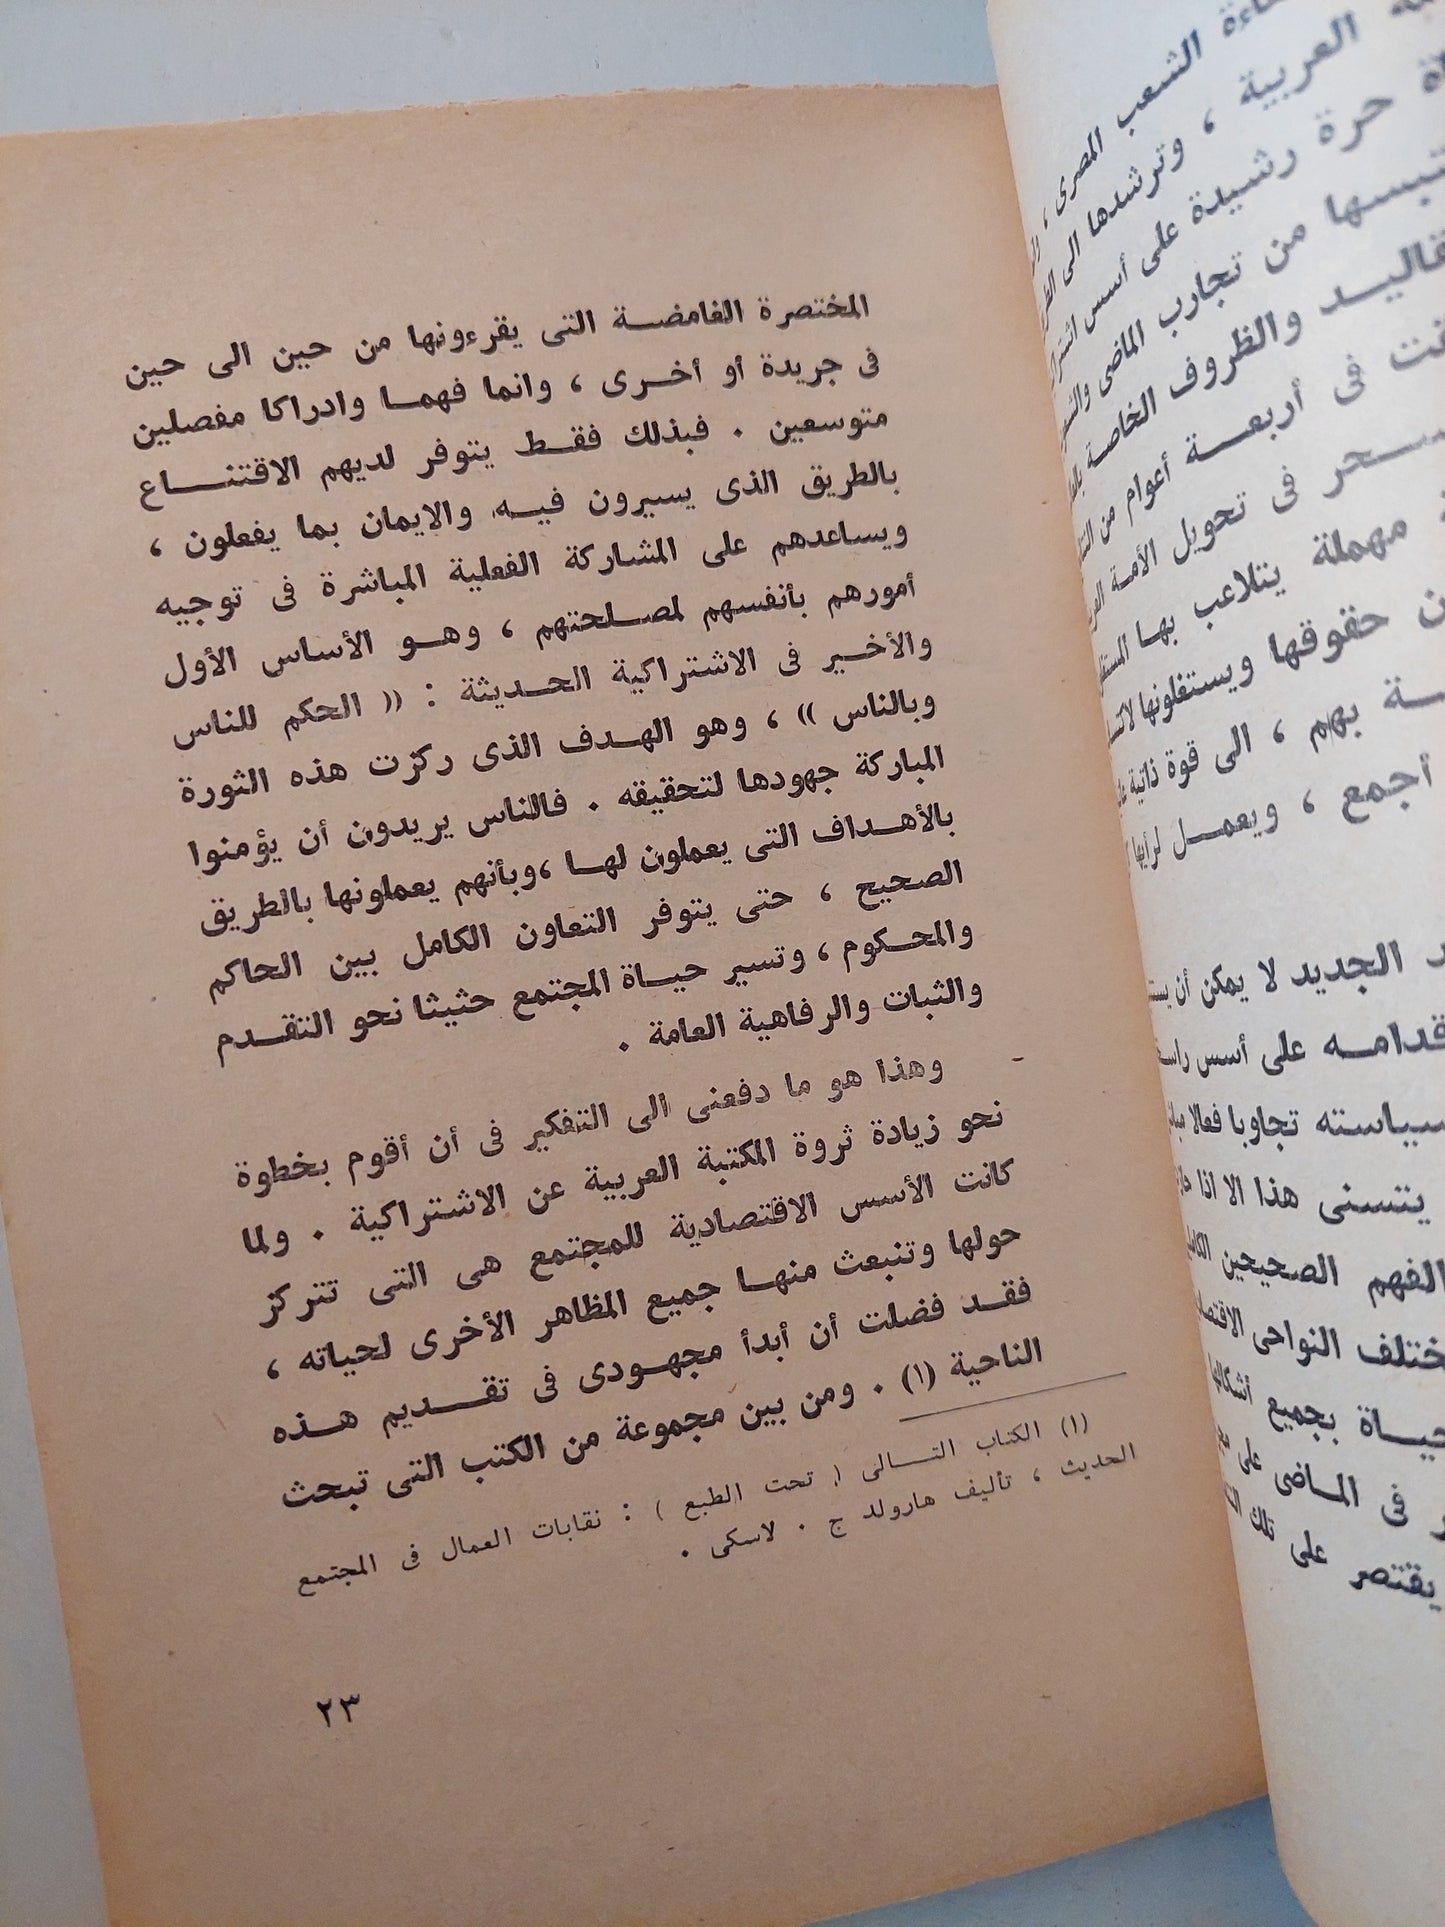 المختصرة الغامضة التى يقرءونها من حين الى حين
فى جريدة أو أخرى ، وانما فهما وادراكا مفصلين
متوسعين . فبذلك فقط يتوفر لديهم الاقتناع
بالطريق الذى يسيرون فيه والايمان بما يفعلون ،
ويساعدهم على المشاركة الفعلية المباشرة فى توجيه
أمورهم بأنفسهم لمصلحتهم ، وهو الأساس الأول
والأخير فى الاشتراكية الحديثة : (( الحكم للناس
وبالناس )) ، وهو الهدف الذى ركزت هذه الثورة
المباركة جهودها لتحقيقه . فالناس يريدون أن يؤمنوا
بالأهداف التى يعملون لها ، وبأنهم يعملونها بالطريق
الصحيح ، حتى يتوفر التعاون الكامل بين الحاكم
والمحكوم ، وتسير حياة المجتمع حثيثا نحو التقدم
والثبات والرفاهية العامة .
وهذا هو ما دفعنى الى التفكير فى أن أقوم بخطوة
نحو زيادة ثروة المكتبة العربية عن الاشتراكية . ولما
كانت الأسس الاقتصادية للمجتمع هى التى تتركز
حولها وتنبعث منها جميع المظاهر الأخرى لحياته ،
فقد فضلت أن أبدأ مجهودى فى تقديم هذه
الناحية (١) . ومن بين مجموعة من الكتب التى تبحث
(١) الكتاب التالى ( تحت الطبع ) : نقابات العمال فى المجتمع
الحديث ، تأليف هارولد ج . لاسكى .
٢٣
الشعب المصرى ،
العربية ، وترشدها الى
حرة رشيدة على أسس
من تجارب الماضى
والظروف الخاصة
فى أربعة أعوام من
فى تحويل الأمة
مهملة يتلاعب بها
حقوقها ويستغلونها
بهم ، الى قوة ذاتية
أجمع ، ويعمل لرأيها
الجديد لا يمكن أن
على أسس
تجاوبا فعالا
يتسنى هذا الا اذا
الفهم الصحيحين
النواحى
بجميع
فى الماضى على
يقتصر على تلك